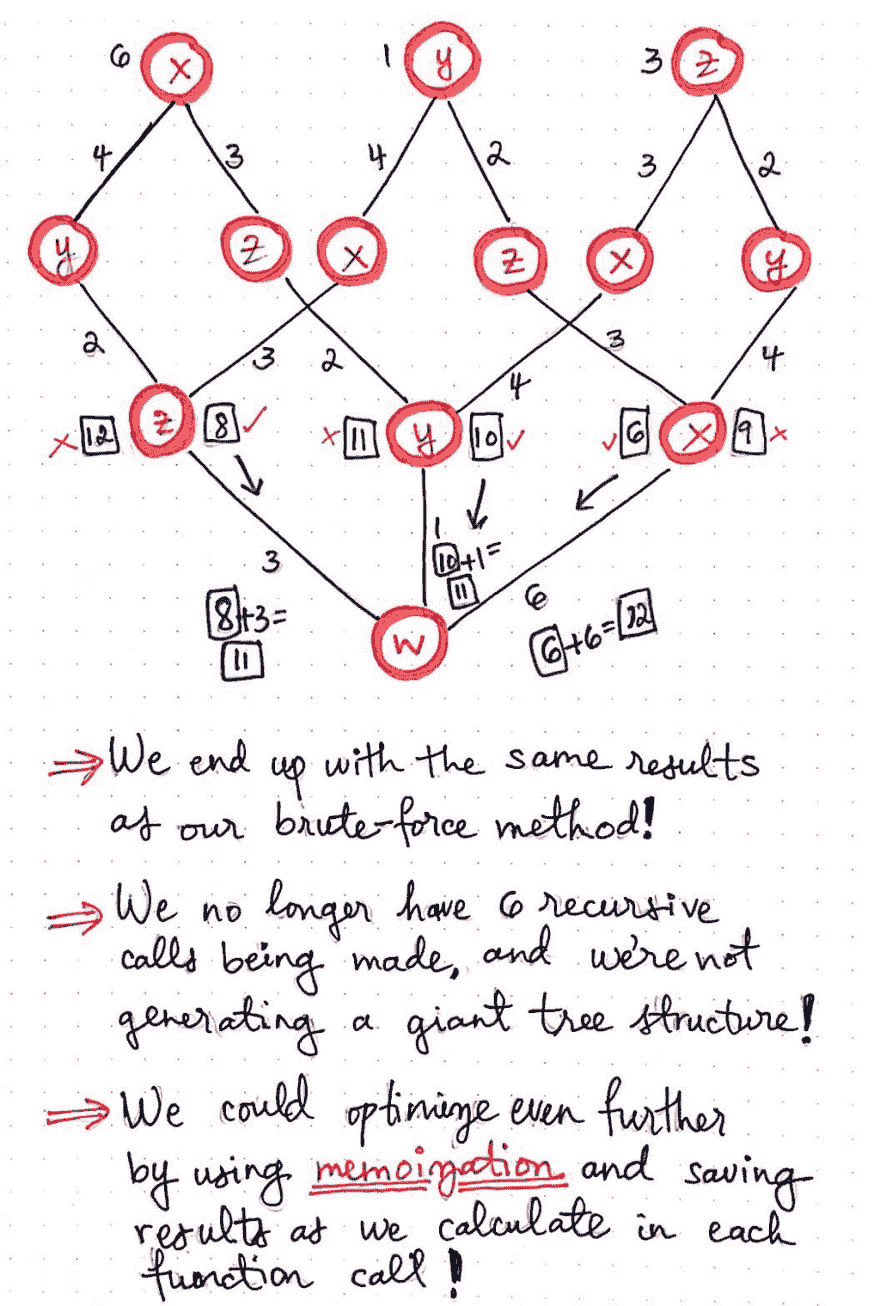 6 x 1 y 3 z
4 3 4 2 3 2
y z x z x y
2 3 2 4 3 4
× 12 z 8 ✓ × 11 y 10 ✓ ✓ 6 x 9 ×
3 1 6
10+1=
11
8+3=
11
w
6+6=12
⇒ We end up with the same results
as our brute-force method!
⇒ We no longer have 6 recursive
calls being made, and we're not
generating a giant tree structure!
⇒ We could optimize even further
by using memoization and saving
results as we calculate in each
function call!